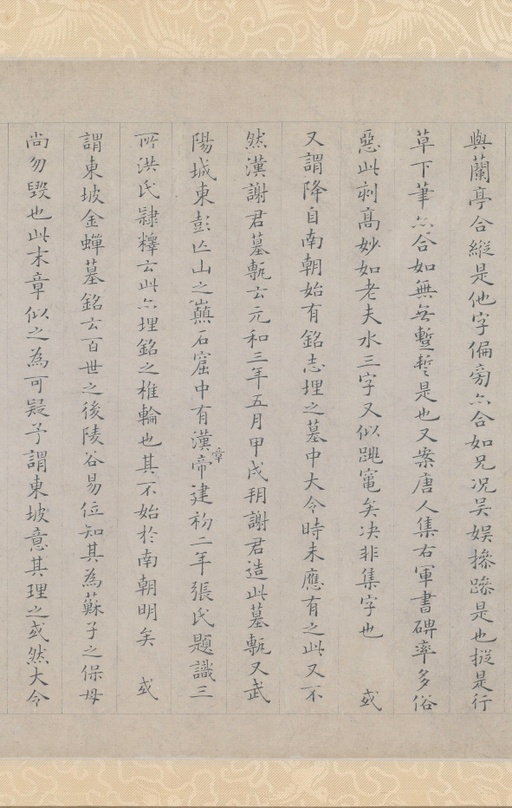 與蘭亭合縱是他字偏旁亦合如兄况吴娱摻蹤是也摐是行
草下筆亦合如無無蹔暫是也又案唐人集右軍書碑率多俗
惡此刻高妙如老夫水三字又似跳竃矣决非集字也　或
又謂降自南朝始有銘志埋之墓中大令時未應有之此又不
然漢謝君墓甎云元和三年五月甲戌朔謝君造此墓甎又武
陽城東彭亡山之巔石窟中有漢章帝建初二年張氏題識三
所洪氏隸釋云此亦埋銘之椎輪也其不始於南朝明矣　或
謂東坡金蟬墓銘云百世之後陵谷易位知其為蘇子之保母
尚勿毀也此末章似之為可疑予謂東坡意其理之或然大令